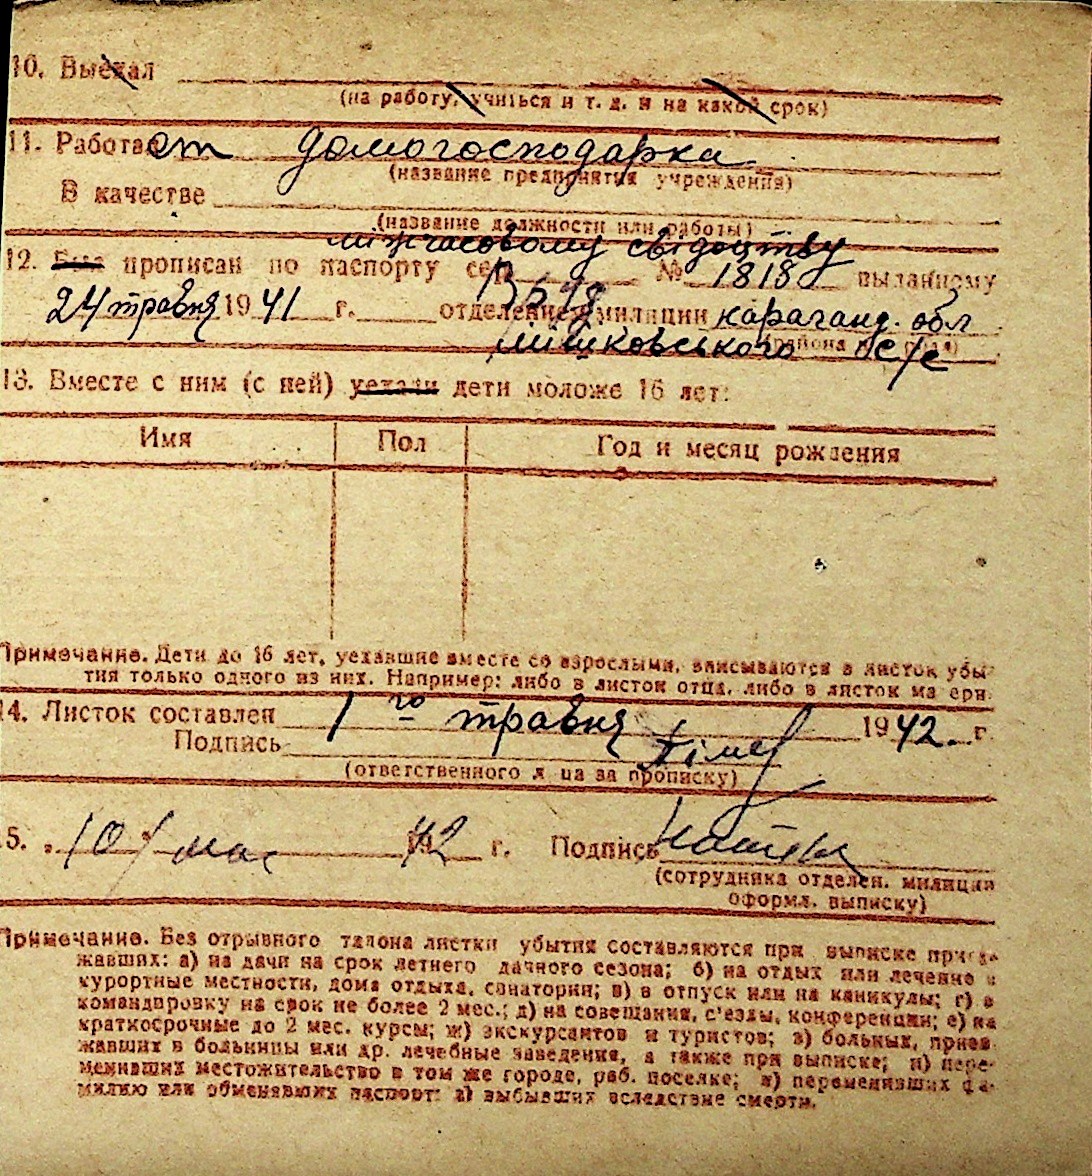 10. Выехал
(на работу, учиться и т. д. и на какой срок)
11. Работает домогосподарка
(название предприятия учреждения)
В качестве
(название должности или работы)
міжчасовому свідоцтву
12. Был прописан по паспорту сер № 1818 выданному
24 травня 1941 г. отделением милиции караганд. обл
13. Вместе с ним (с ней) уехали дети моложе 16 лет:
Имя Пол Год и месяц рождения
Примечание. Дети до 16 лет, уехавшие вместе со взрослыми, вписываются в листок убы-
тия только одного из них. Например: либо в листок отца, либо в листок ма ери.
14. Листок составлен 1го травня 1942. г.
Подпись
(ответственного л ца за прописку)
5. „10" мая 42 г. Подпись
(сотрудника отделен. милиции
оформл. выписку)
Примечание. Без отрывного талона листки убытия составляются при выписке приез-
жавших: а) на дачи на срок летнего дачного сезона; б) на отдых или лечение в
курортные местности, дома отдыха, санатории; в) в отпуск или на каникулы; г) в
командировку на срок не более 2 мес.; д) на совещания, с'езды, конференции; е) на
краткосрочные до 2 мес. курсы; ж) экскурсантов и туристов; з) больных, приез-
жавших в больницы или др. лечебные заведения, а также при выписке; и) пере-
менивших местожительство в том же городе, раб. поселке; к) переменивших фа-
милию или обменявших паспорт: л) выбывших вследствие смерти.